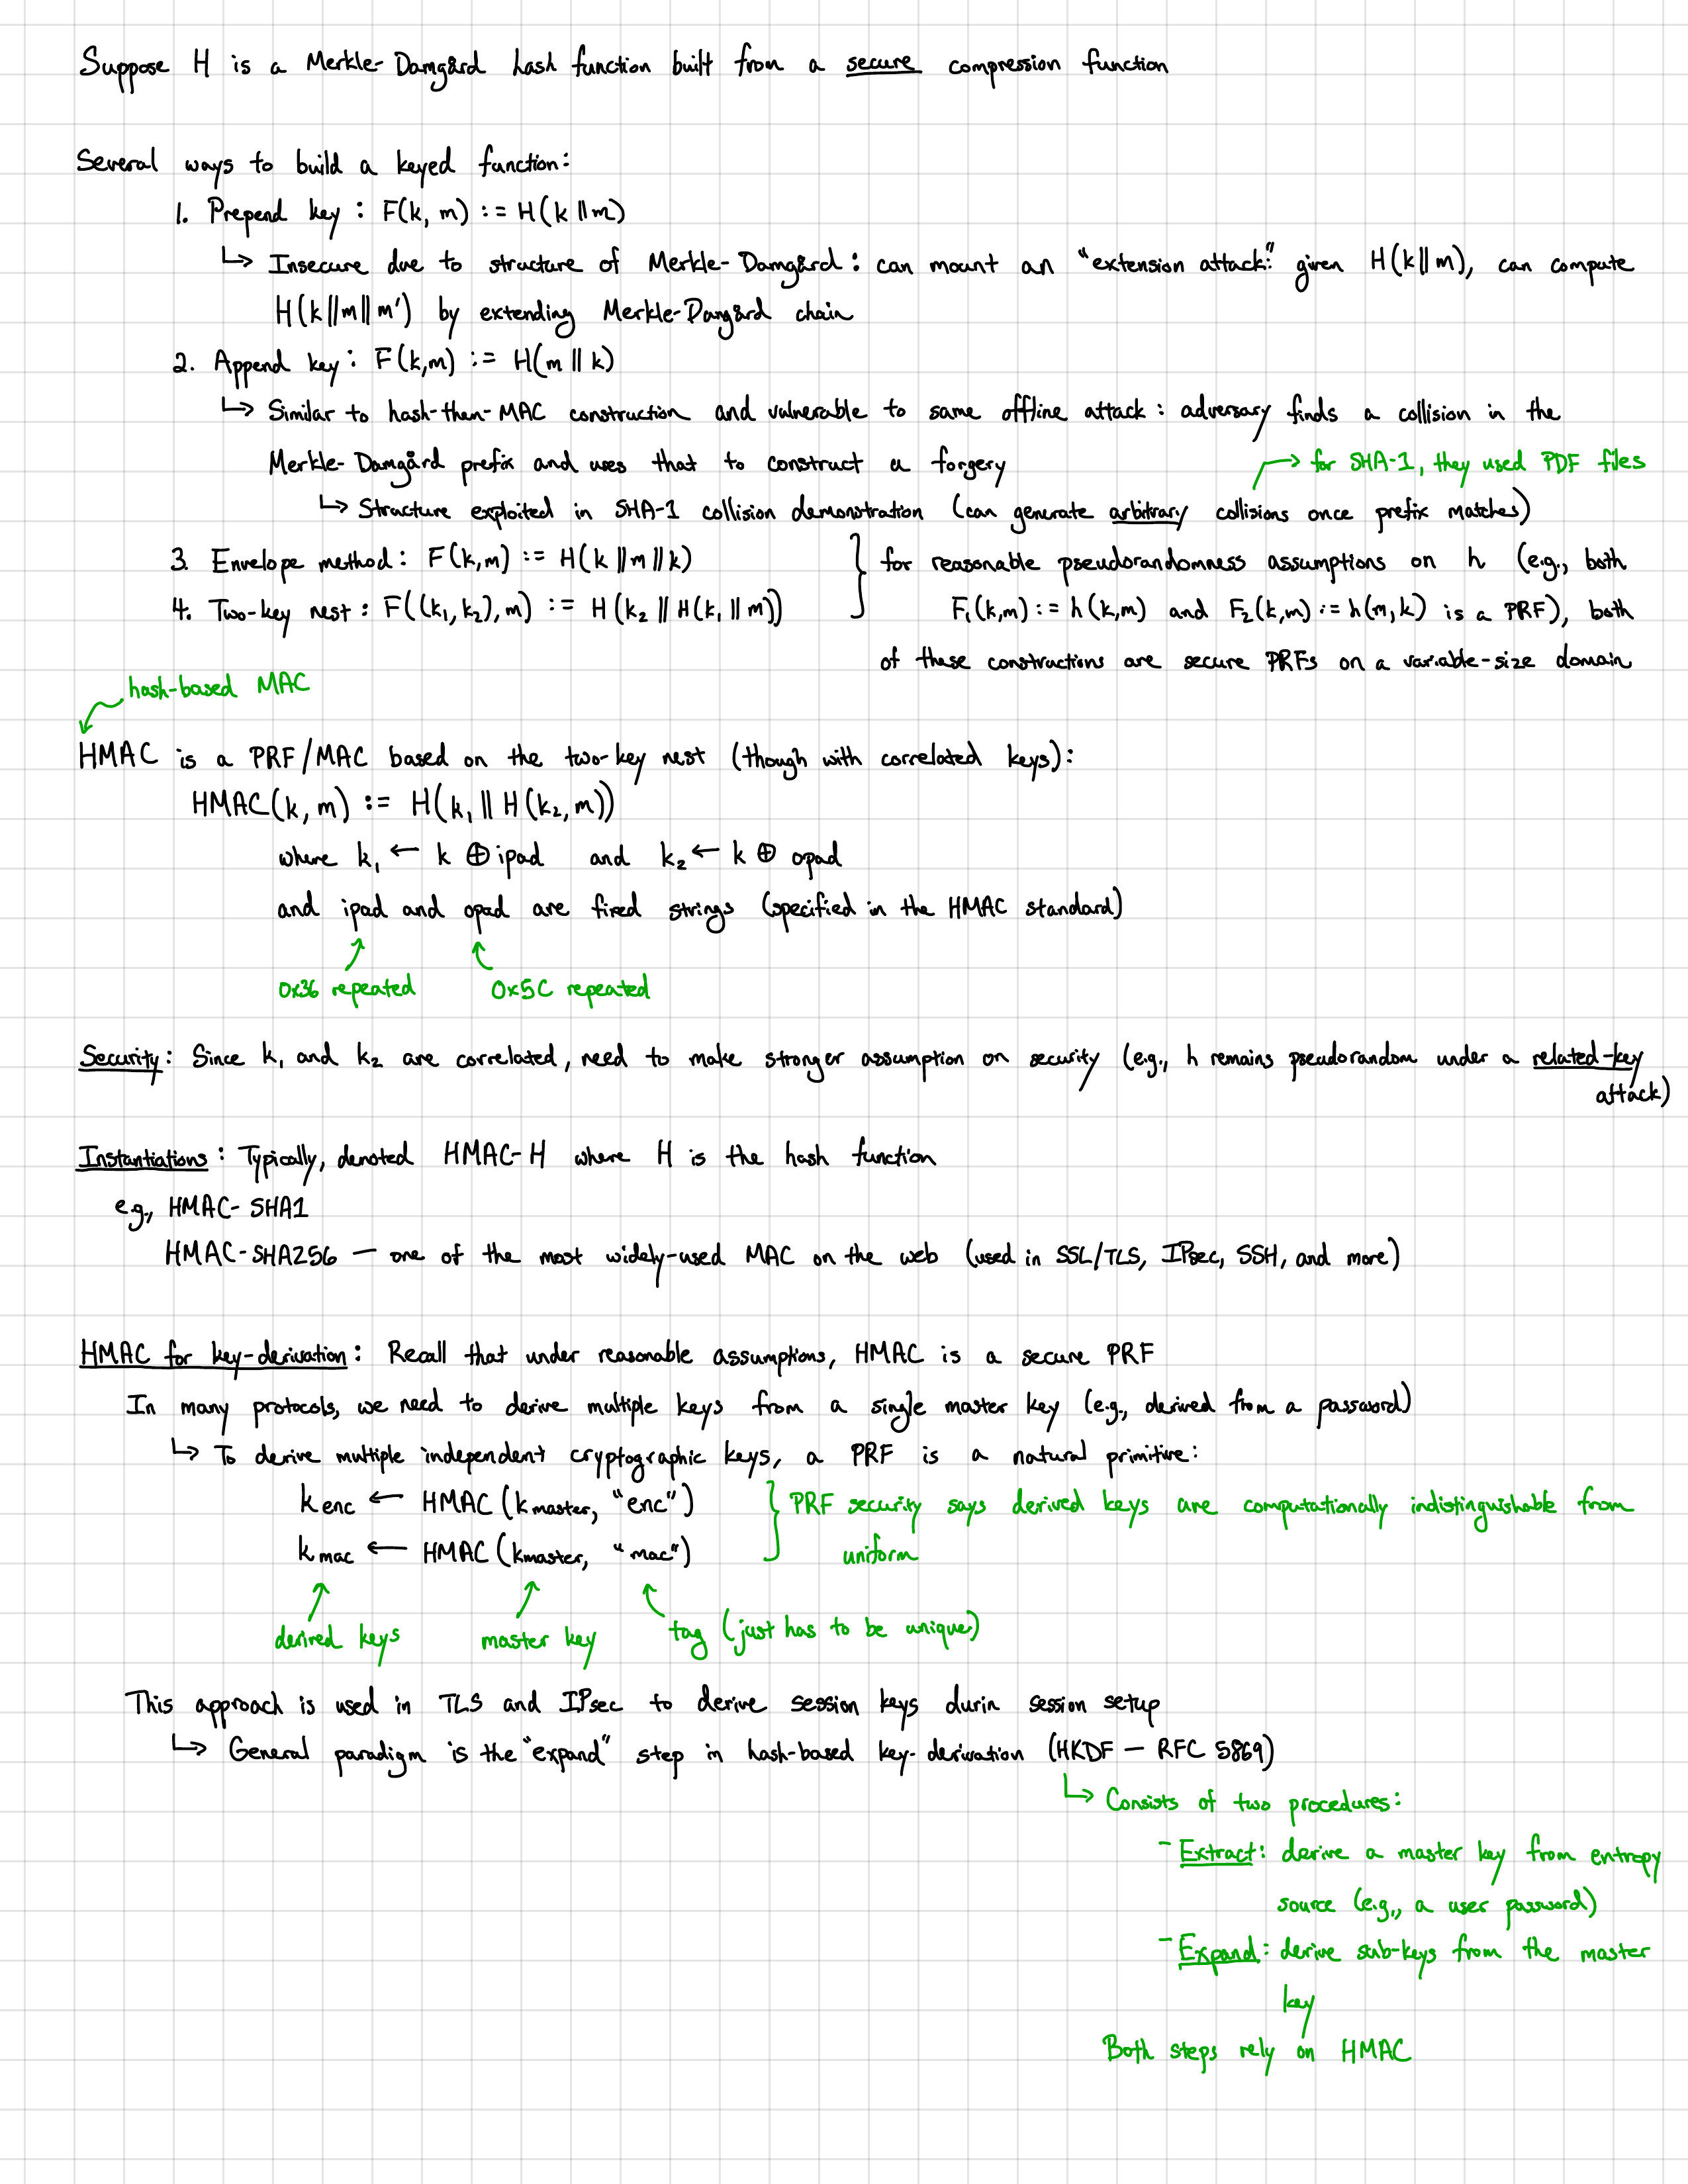 Suppose H is a Merkle-Damgård hash function built from a secure compression function
Several ways to build a keyed function:
1. Prepend key : F(k, m) := H(k || m)
↳ Insecure due to structure of Merkle-Damgård : can mount an "extension attack:" given H(k || m), can compute
H(k || m || m') by extending Merkle-Damgård chain
2. Append key : F(k,m) := H(m || k)
↳ Similar to hash-then-MAC construction and vulnerable to same offline attack : adversary finds a collision in the
Merkle-Damgård prefix and uses that to construct a forgery
→ for SHA-1, they used PDF files
↳ Structure exploited in SHA-1 collision demonstration (can generate arbitrary collisions once prefix matches)
3. Envelope method : F(k,m) := H(k || m || k) } for reasonable pseudorandomness assumptions on h (e.g., both
4. Two-key nest : F((k₁, k₂), m) := H(k₂ || H(k₁ || m)) F₁(k,m) := h(k,m) and F₂(k,m) := h(m,k) is a PRF), both
of these constructions are secure PRFs on a variable-size domain
hash-based MAC
HMAC is a PRF/MAC based on the two-key nest (though with correlated keys):
HMAC(k, m) := H(k₁ || H(k₂, m))
where k₁ ← k ⊕ ipad and k₂ ← k ⊕ opad
and ipad and opad are fixed strings (specified in the HMAC standard)
0x36 repeated 0x5C repeated
Security : Since k₁ and k₂ are correlated, need to make stronger assumption on security (e.g., h remains pseudorandom under a related-key
attack)
Instantiations : Typically, denoted HMAC-H where H is the hash function
e.g., HMAC-SHA1
HMAC-SHA256 — one of the most widely-used MAC on the web (used in SSL/TLS, IPsec, SSH, and more)
HMAC for key-derivation : Recall that under reasonable assumptions, HMAC is a secure PRF
In many protocols, we need to derive multiple keys from a single master key (e.g., derived from a password)
↳ To derive multiple independent cryptographic keys, a PRF is a natural primitive:
k enc ← HMAC (k master, "enc") } PRF security says derived keys are computationally indistinguishable from
k mac ← HMAC (k master, "mac") uniform
derived keys master key tag (just has to be unique)
This approach is used in TLS and IPsec to derive session keys durin session setup
↳ General paradigm is the "expand" step in hash-based key-derivation (HKDF — RFC 5869)
↳ Consists of two procedures:
- Extract : derive a master key from entropy
source (e.g., a user password)
- Expand : derive sub-keys from the master
key
Both steps rely on HMAC